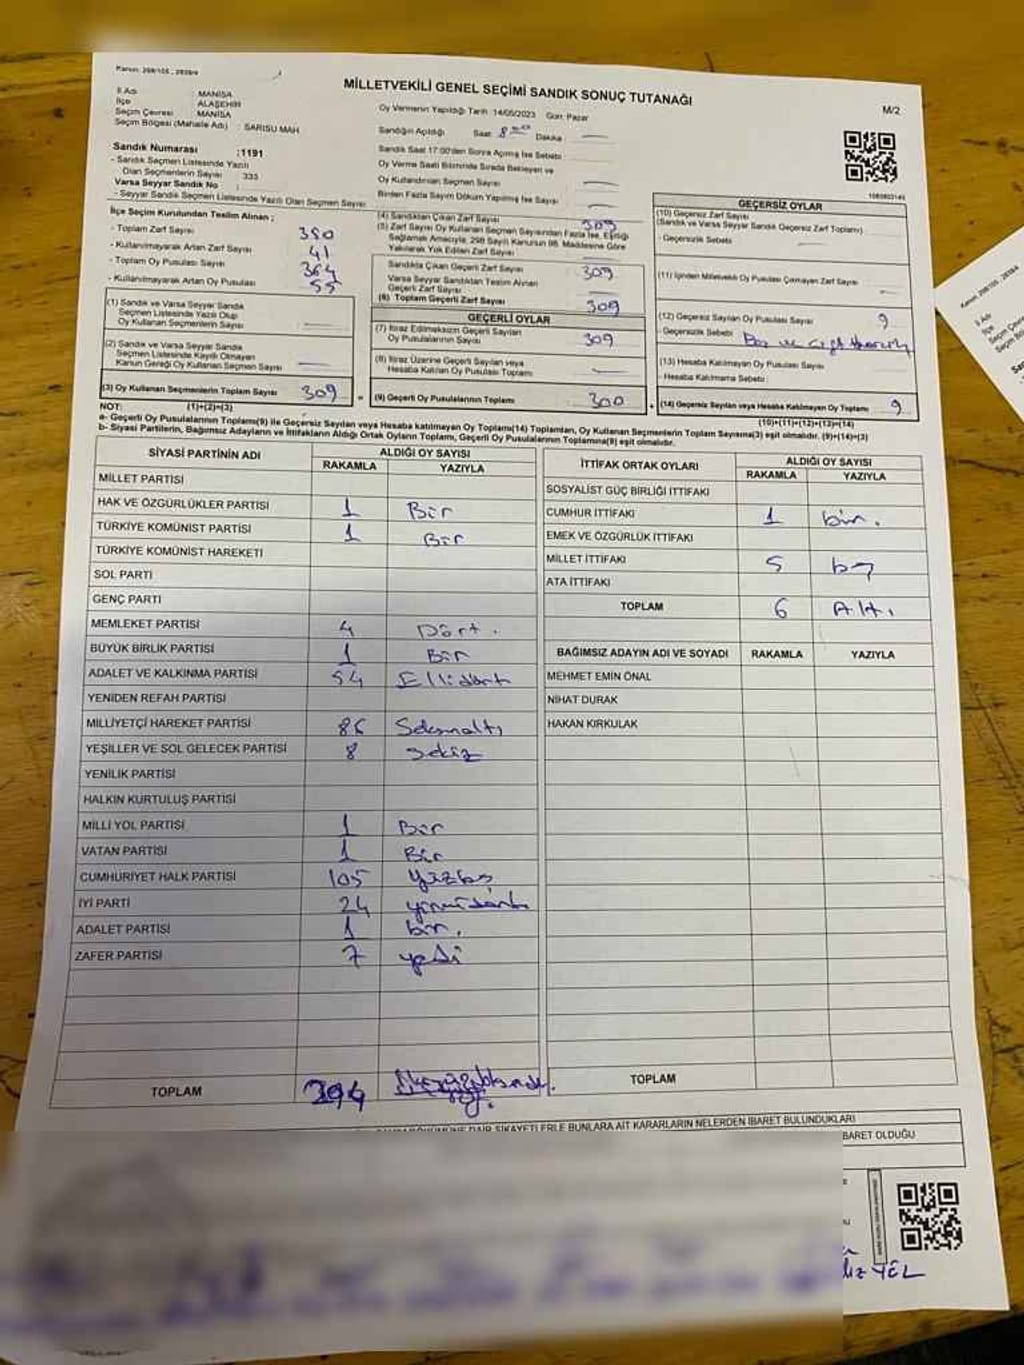 Kanun: 298/105 , 2839/4
MİLLETVEKİLİ GENEL SEÇİMİ SANDIK SONUÇ TUTANAĞI
M/2
İl Adı : MANİSA
İlçe : ALAŞEHİR
Seçim Çevresi : MANİSA
Seçim Bölgesi (Mahalle Adı) : SARISU MAH
Oy Vermenin Yapıldığı Tarih: 14/05/2023 Gün: Pazar
Sandığın Açıldığı Saat: 8 Dakika :
Sandık Saat 17:00'den Sonra Açılmış İse Sebebi:
Oy Verme Saati Bitiminde Sırada Bekleyen ve
Oy Kullandırılan Seçmen Sayısı
Birden Fazla Sayım Döküm Yapılmış İse Sayısı
Sandık Numarası :1191
- Sandık Seçmen Listesinde Yazılı
Olan Seçmenlerin Sayısı 335
Varsa Seyyar Sandık No :
- Seyyar Sandık Seçmen Listesinde Yazılı Olan Seçmen Sayısı
İlçe Seçim Kurulundan Teslim Alınan ;
- Toplam Zarf Sayısı 350
- Kullanılmayarak Artan Zarf Sayısı 41
- Toplam Oy Pusulası Sayısı 364
- Kullanılmayarak Artan Oy Pusulası 55
(1) Sandık ve Varsa Seyyar Sandık
Seçmen Listesinde Yazılı Olup
Oy Kullanan Seçmenlerin Sayısı
(2) Sandık ve Varsa Seyyar Sandık
Seçmen Listesinde Kayıtlı Olmayan
Kanun Gereği Oy Kullanan Seçmen Sayısı
(3) Oy Kullanan Seçmenlerin Toplam Sayısı 309
(1)+(2)=(3)
(4) Sandıktan Çıkan Zarf Sayısı 309
(5) Zarf Sayısı Oy Kullanan Seçmen Sayısından Fazla İse, Eşitliği
Sağlamak Amacıyla, 298 Sayılı Kanunun 98. Maddesine Göre
Yakılarak Yok Edilen Zarf Sayısı
Sandıkta Çıkan Geçerli Zarf Sayısı 309
Varsa Seyyar Sandıktan Teslim Alınan
Geçerli Zarf Sayısı
(6) Toplam Geçerli Zarf Sayısı 309
GEÇERLİ OYLAR
(7) İtiraz Edilmeksizin Geçerli Sayılan
Oy Pusulalarının Sayısı 309
(8) İtiraz Üzerine Geçerli Sayılan veya
Hesaba Katılan Oy Pusulası Toplamı
= (9) Geçerli Oy Pusulalarının Toplamı 300
GEÇERSİZ OYLAR
(10) Geçersiz Zarf Sayısı
(Sandık ve Varsa Seyyar Sandık Geçersiz Zarf Toplamı)
- Geçersizlik Sebebi
(11) İçinden Milletvekili Oy Pusulası Çıkmayan Zarf Sayısı
(12) Geçersiz Sayılan Oy Pusulası Sayısı 9
- Geçersizlik Sebebi Boş ve çift
(13) Hesaba Katılmayan Oy Pusulası Sayısı
- Hesaba Katılmama Sebebi :
+ (14) Geçersiz Sayılan veya Hesaba Katılmayan Oy Toplamı 9
(10)+(11)+(12)+(13)=(14)
NOT:
a- Geçerli Oy Pusulalarının Toplamı(9) ile Geçersiz Sayılan veya Hesaba katılmayan Oy Toplamı(14) Toplamları, Oy Kullanan Seçmenlerin Toplam Sayısına(3) eşit olmalıdır. (9)+(14)=(3)
b- Siyasi Partilerin, Bağımsız Adayların ve İttifakların Aldığı Ortak Oyların Toplamı, Geçerli Oy Pusulalarının Toplamına(9) eşit olmalıdır.
SİYASİ PARTİNİN ADI ALDIĞI OY SAYISI
RAKAMLA YAZIYLA
MİLLET PARTİSİ
HAK VE ÖZGÜRLÜKLER PARTİSİ 1 Bir
TÜRKİYE KOMÜNİST PARTİSİ 1 Bir
TÜRKİYE KOMÜNİST HAREKETİ
SOL PARTİ
GENÇ PARTİ
MEMLEKET PARTİSİ 4 Dört.
BÜYÜK BİRLİK PARTİSİ 1 Bir
ADALET VE KALKINMA PARTİSİ 54 Ellidört
YENİDEN REFAH PARTİSİ
MİLLİYETÇİ HAREKET PARTİSİ 86 Seksenaltı
YEŞİLLER VE SOL GELECEK PARTİSİ 8 sekiz
YENİLİK PARTİSİ
HALKIN KURTULUŞ PARTİSİ
MİLLİ YOL PARTİSİ 1 Bir
VATAN PARTİSİ 1 Bir
CUMHURİYET HALK PARTİSİ 105 yüzbeş
İYİ PARTİ 24 yirmidört
ADALET PARTİSİ 1 bir.
ZAFER PARTİSİ 7 yedi
TOPLAM 294
İTTİFAK ORTAK OYLARI ALDIĞI OY SAYISI
RAKAMLA YAZIYLA
SOSYALİST GÜÇ BİRLİĞİ İTTİFAKI
CUMHUR İTTİFAKI 1 bir.
EMEK VE ÖZGÜRLÜK İTTİFAKI
MİLLET İTTİFAKI 5 beş
ATA İTTİFAKI
TOPLAM 6 Altı.
BAĞIMSIZ ADAYIN ADI VE SOYADI RAKAMLA YAZIYLA
MEHMET EMİN ÖNAL
NİHAT DURAK
HAKAN KIRKULAK
TOPLAM
DÖKÜMÜNE DAİR ŞİKAYETLERLE BUNLARA AİT KARARLARIN NELERDEN İBARET BULUNDUKLARI
İBARET OLDUĞU
YEL
Kanun: 298/105 , 2839/4
İl Adı
İlçe
Seçim Çevresi